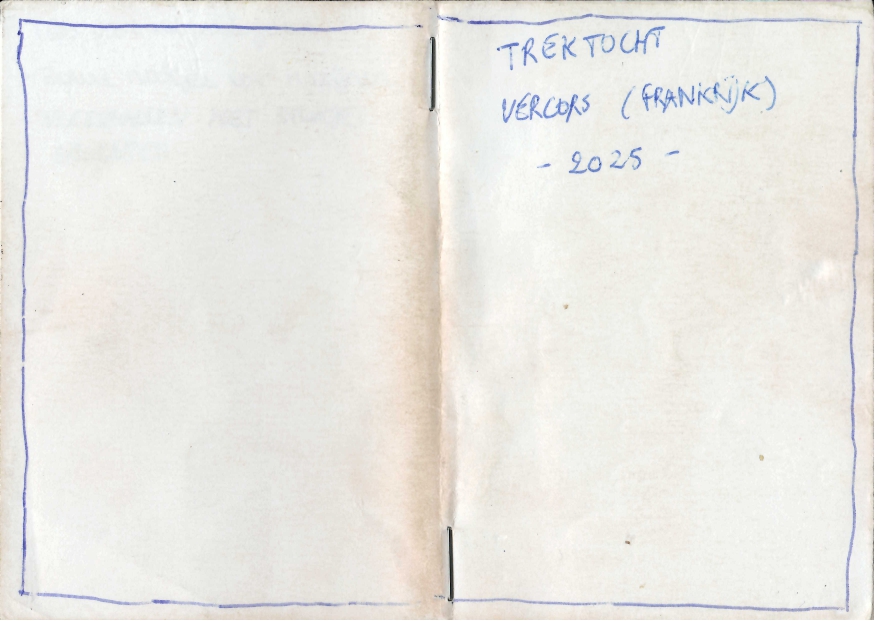 TREKTOCHT
VERCORS (FRANKRIJK)
- 2025 -